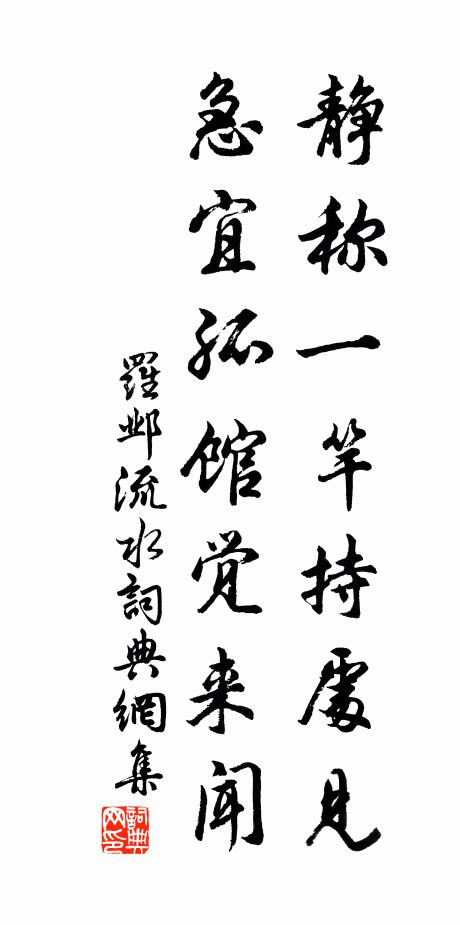 静称一竿持處見
急宜孤館觉来闻
羅邺流水詞典網集
詞典网印